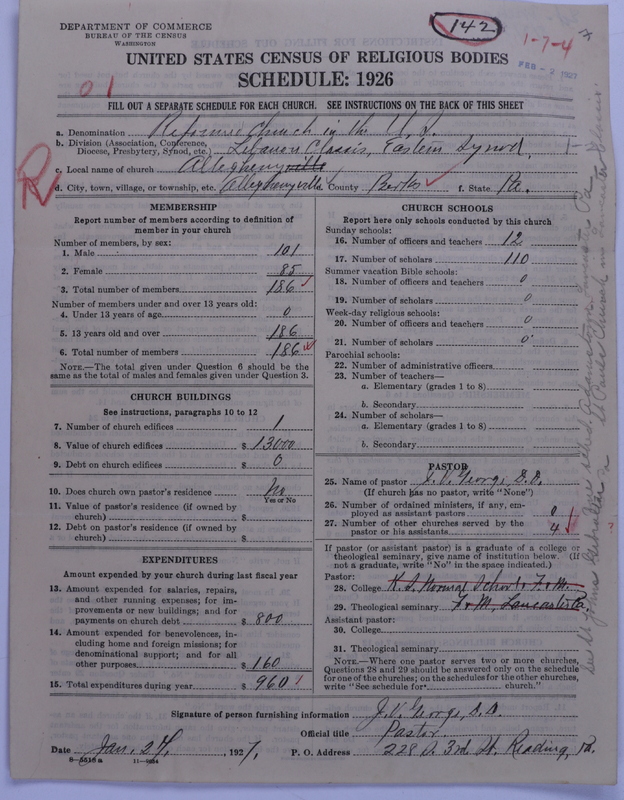 DEPARTMENT OF COMMERCE
BUREAU OF THE CENSUS
WASHINGTON
142
1-7-4
FEB -2 1927
UNITED STATES CENSUS OF RELIGIOUS BODIES
SCHEDULE: 1926
01
FILL OUT A SEPARATE SCHEDULE FOR EACH CHURCH. SEE INSTRUCTIONS ON THE BACK OF THIS SHEET
a. Denomination Reformed Church in the U. S.
b. Division (Association, Conference, Diocese, Presbytery, Synod, etc.) Lebanon Classis, Eastern Synod,
c. Local name of church Alleghenyville
d. City, town, village, or township, etc. Alleghenyville County Berks f. State Pa.
R
MEMBERSHIP
Report number of members according to definition of member in your church
Number of members, by sex:
1. Male 101
2. Female 85
3. Total number of members 186
Number of members under and over 13 years old:
4. Under 13 years of age 0
5. 13 years old and over 186
6. Total number of members 186
NOTE.—The total given under Question 6 should be the same as the total of males and females given under Question 3.
CHURCH BUILDINGS
See instructions, paragraphs 10 to 12
7. Number of church edifices 1
8. Value of church edifices $ 13000
9. Debt on church edifices $ 0
10. Does church own pastor's residence No
Yes or No
11. Value of pastor's residence (if owned by church) $
12. Debt on pastor's residence (if owned by church) $
EXPENDITURES
Amount expended by your church during last fiscal year
13. Amount expended for salaries, repairs, and other running expenses; for improvements or new buildings; and for payments on church debt $ 800
14. Amount expended for benevolences, including home and foreign missions; for denominational support; and for all other purposes $ 160
15. Total expenditures during year $ 960
CHURCH SCHOOLS
Report here only schools conducted by this church
Sunday schools:
16. Number of officers and teachers 12
17. Number of scholars 110
Summer vacation Bible schools:
18. Number of officers and teachers 0
19. Number of scholars 0
Week-day religious schools:
20. Number of officers and teachers 0
21. Number of scholars 0
Parochial schools:
22. Number of administrative officers
23. Number of teachers—
a. Elementary (grades 1 to 8)
b. Secondary
24. Number of scholars—
a. Elementary (grades 1 to 8)
b. Secondary
PASTOR
25. Name of pastor J. V. George, D.D.
(If church has no pastor, write "None")
26. Number of ordained ministers, if any, employed as assistant pastors 0
27. Number of other churches served by the pastor or his assistants 4
If pastor (or assistant pastor) is a graduate of a college or theological seminary, give name of institution below. (If not a graduate, write "No" in the space indicated.)
Pastor:
28. College K. S. Normal School & F. & M.
29. Theological seminary F. & M., Lancaster Pa.
Assistant pastor:
30. College
31. Theological seminary
NOTE.—Where one pastor serves two or more churches, Questions 28 and 29 should be answered only on the schedule for one of the churches; on the schedules for the other churches, write "See schedule for church."
Signature of person furnishing information J. V. George, D.D.
Official title Pastor
Date Jan. 24, 1927,
P. O. Address 228 A. 3rd St. Reading, Pa.
8-5518 a